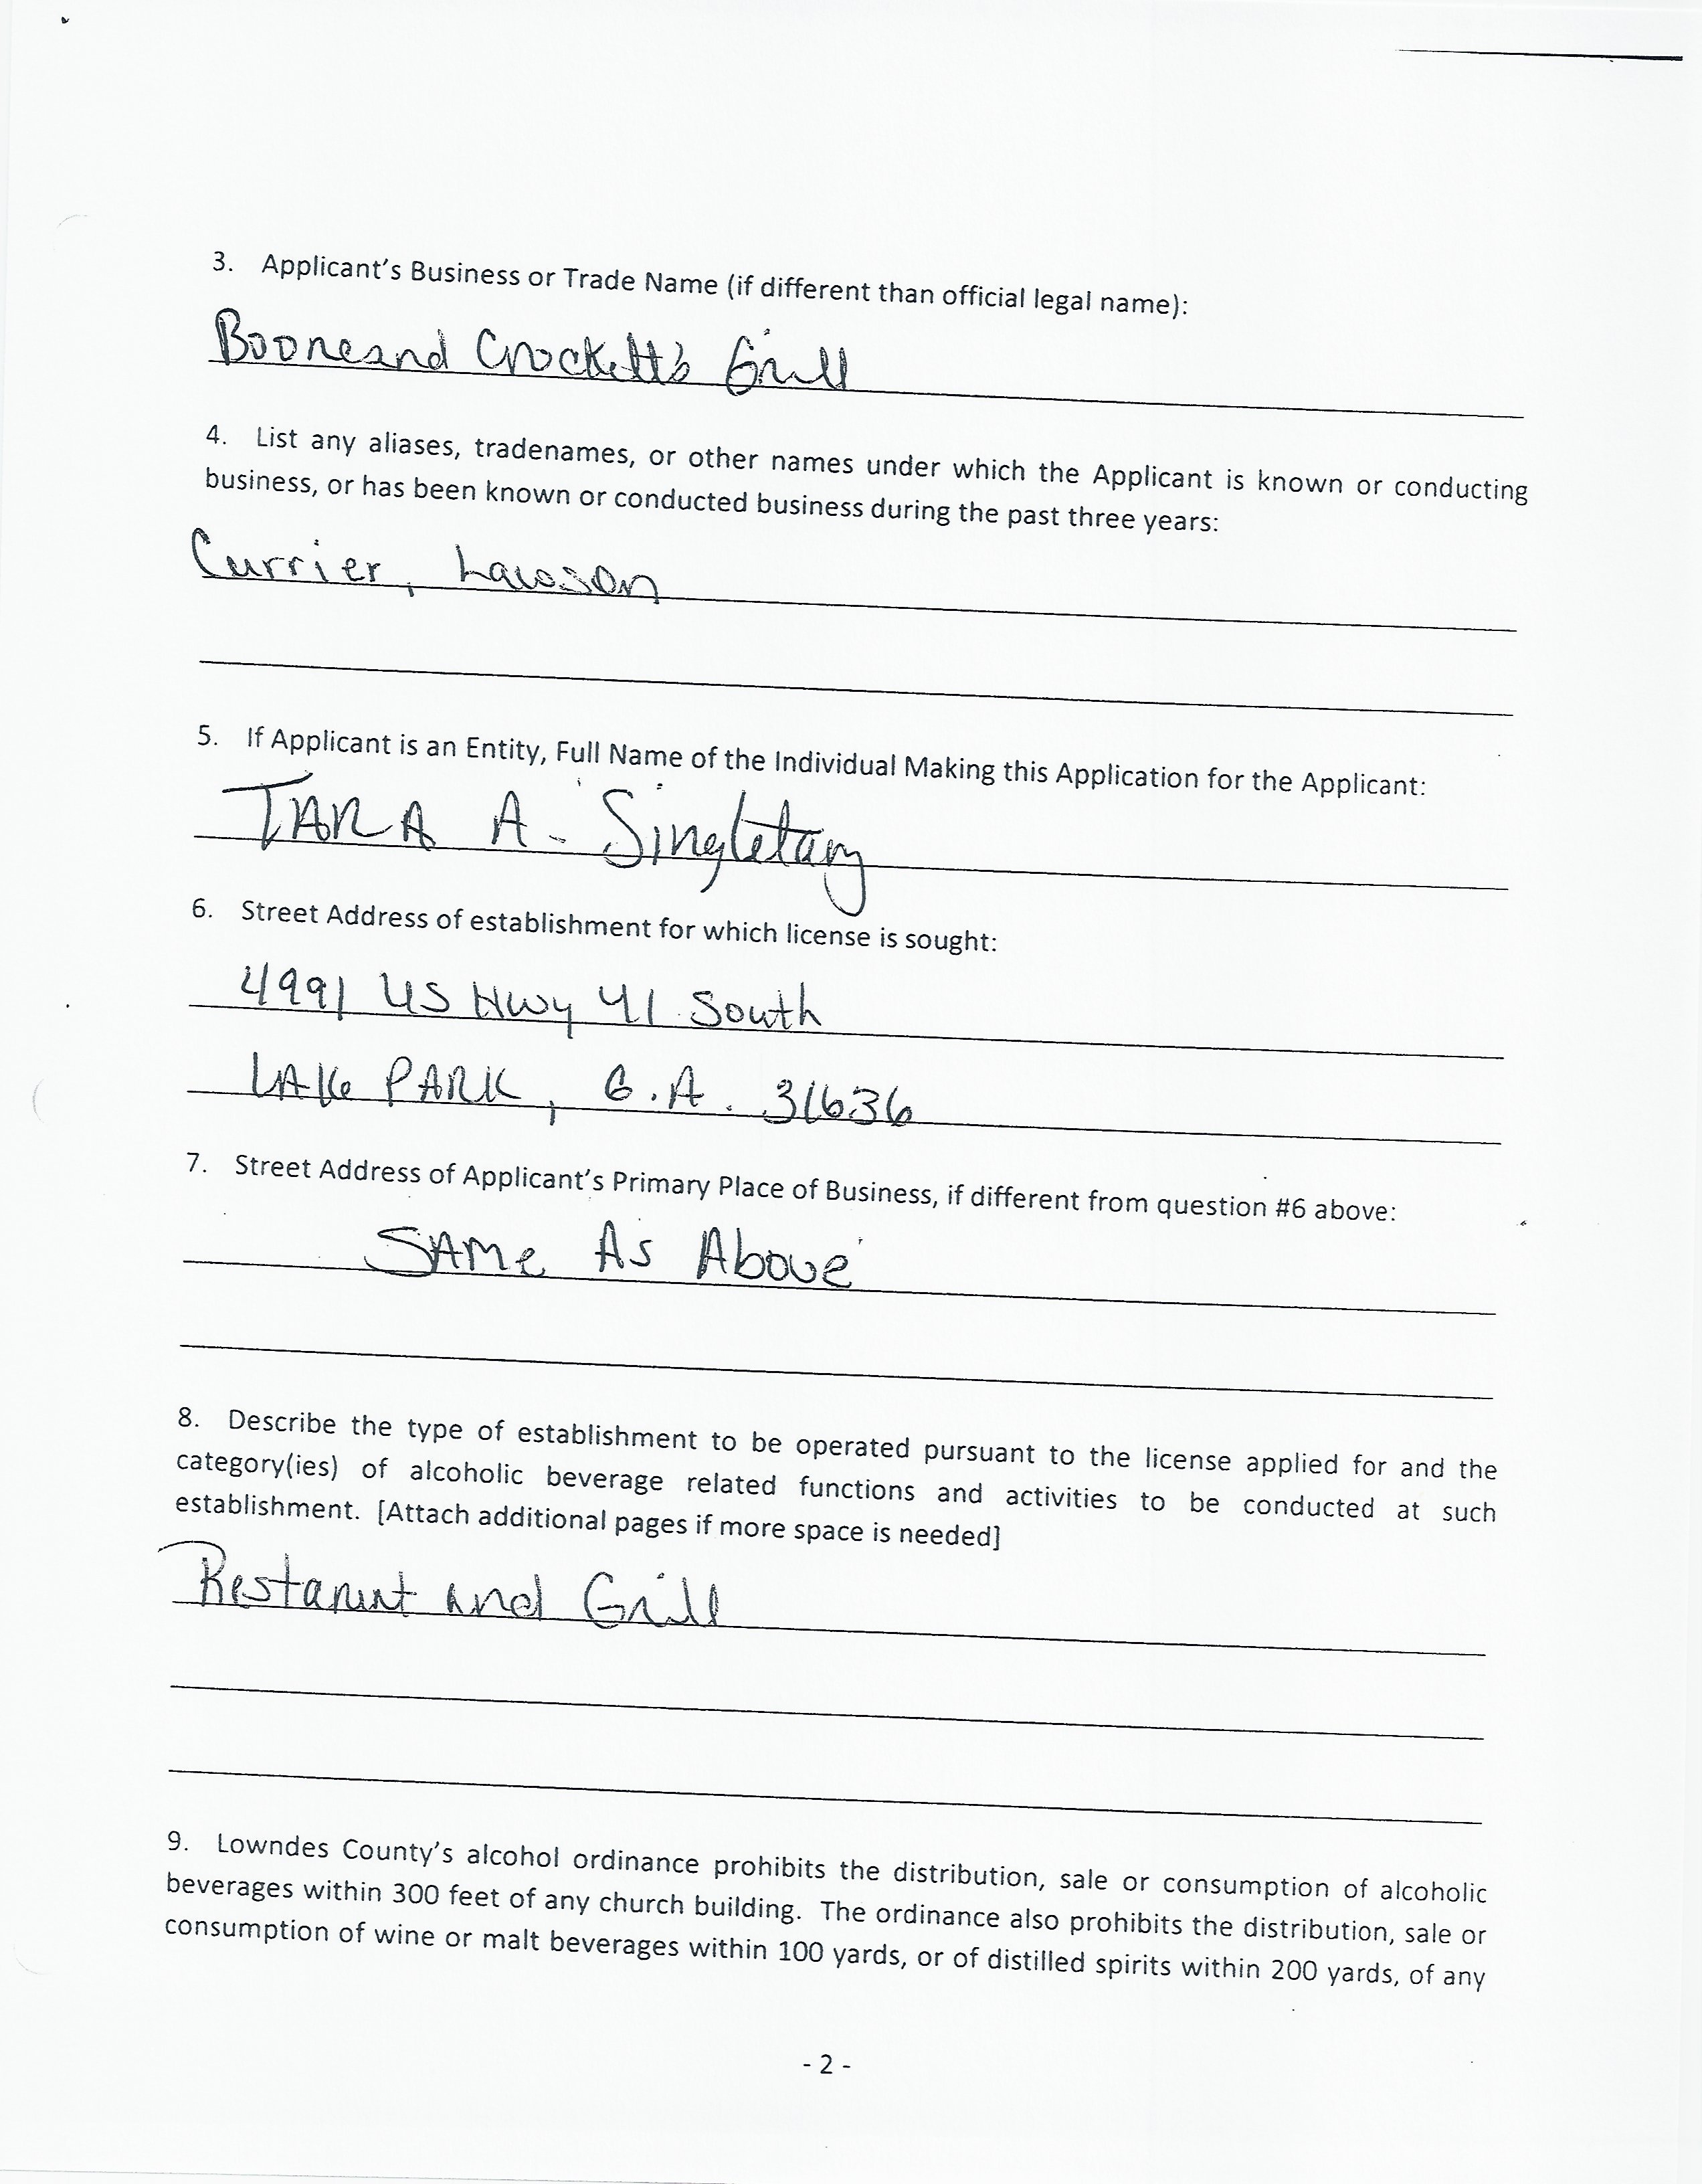 3. Applicant's Business or Trade Name (if different than official legal name):
Boone and Crockett's Grill
4. List any aliases, tradenames, or other names under which the Applicant is known or conducting
business, or has been known or conducted business during the past three years:
Currier, Lawson
5. If Applicant is an Entity, Full Name of the Individual Making this Application for the Applicant:
TARA A. Singletary
6. Street Address of establishment for which license is sought:
4991 US Hwy 41 South
LAKe PARK, G.A. 31636
7. Street Address of Applicant's Primary Place of Business, if different from question #6 above:
SAMe As Above
8. Describe the type of establishment to be operated pursuant to the license applied for and the
category(ies) of alcoholic beverage related functions and activities to be conducted at such
establishment. [Attach additional pages if more space is needed]
Restarunt and Grill
9. Lowndes County's alcohol ordinance prohibits the distribution, sale or consumption of alcoholic
beverages within 300 feet of any church building. The ordinance also prohibits the distribution, sale or
consumption of wine or malt beverages within 100 yards, or of distilled spirits within 200 yards, of any
- 2 -